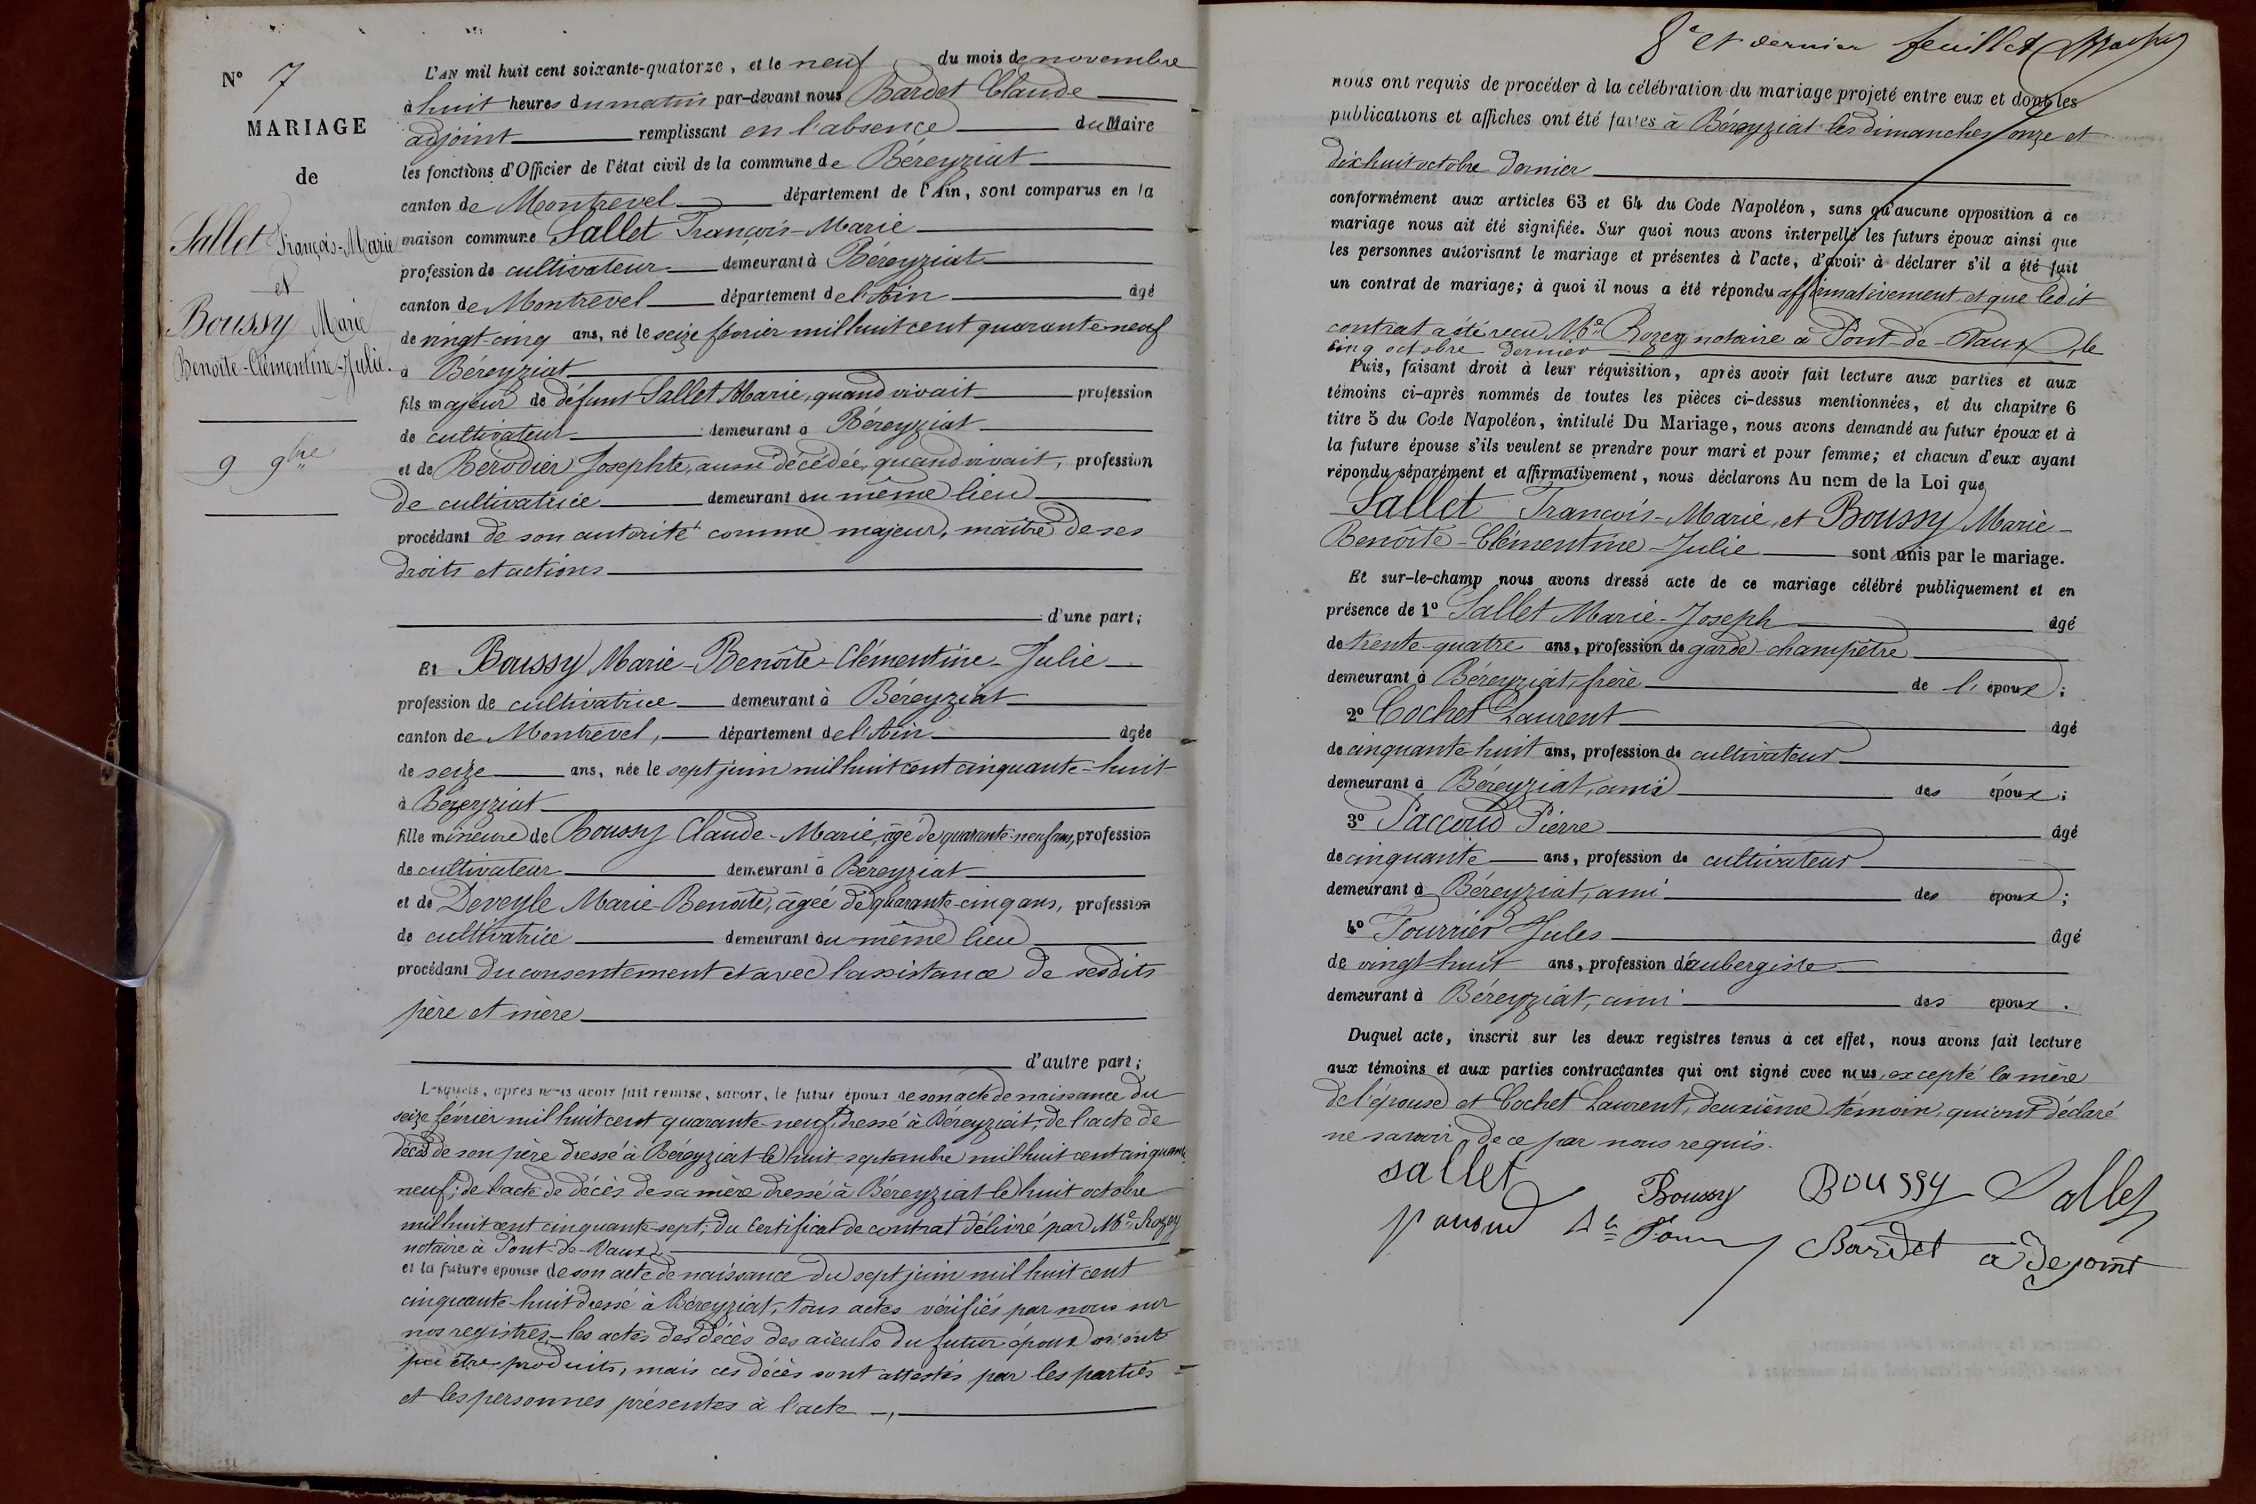 N° 7
MARIAGE
de
Sallet François-Marie
et
Boussy Marie
Benoîte-Clémentine-Julie.
9 9bre
L'AN mil huit cent soixante-quatorze, et le neuf du mois de novembre
à huit heures du matin par-devant nous Bardet Claude
adjoint remplissant en l'absence du Maire
les fonctions d'Officier de l'état civil de la commune de Béreyziat
canton de Montrevel département de l'Ain, sont comparus en la
maison commune Sallet François-Marie
profession de cultivateur demeurant à Béreyziat
canton de Montrevel département de l'Ain âgé
de vingt-cinq ans, né le seize février mil huit cent quarante-neuf
à Béreyziat
fils majeur de défunt Sallet Marie, quand vivait profession
de cultivateur demeurant à Béreyziat
et de Bérodier Josephte, aussi décédée, quand vivait, profession
de cultivatrice demeurant au même lieu
procédant de son autorité comme majeur, maître de ses
droits et actions
d'une part;
Et Boussy Marie-Benoîte-Clémentine-Julie
profession de cultivatrice demeurant à Béreyziat
canton de Montrevel, département de l'Ain âgée
de seize ans, née le sept juin mil huit cent cinquante-huit
à Béreyziat
fille mineure de Boussy Claude-Marie, âgé de quarante-neuf ans, profession
de cultivateur demeurant à Béreyziat
et de Deveyle Marie-Benoîte, âgée de quarante-cinq ans, profession
de cultivatrice demeurant au même lieu
procédant du consentement et avec l'assistance de sesdits
père et mère
d'autre part;
Lesquels, après nous avoir fait remise, savoir, le futur époux de son acte de naissance du
seize février mil huit cent quarante-neuf, dressé à Béreyziat; de l'acte de
décès de son père dressé à Béreyziat le huit septembre mil huit cent cinquante
neuf; de l'acte de décès de sa mère dressé à Béreyziat le huit octobre
mil huit cent cinquante-sept; du certificat de contrat délivré par Me Rozey
notaire à Pont-de-Vaux
et la future épouse de son acte de naissance du sept juin mil huit cent
cinquante-huit dressé à Béreyziat; tous actes vérifiés par nous sur
nos registres, les actes de décès des aïeuls du futur époux n'ont
pu être produits, mais ces décès sont attestés par les parties
et les personnes présentes à l'acte
8e et dernier feuillet
nous ont requis de procéder à la célébration du mariage projeté entre eux et dont les
publications et affiches ont été faites à Béreyziat les dimanches onze et
dix huit octobre dernier
conformément aux articles 63 et 64 du Code Napoléon, sans qu'aucune opposition à ce
mariage nous ait été signifiée. Sur quoi nous avons interpellé les futurs époux ainsi que
les personnes autorisant le mariage et présentes à l'acte, d'avoir à déclarer s'il a été fait
un contrat de mariage; à quoi il nous a été répondu affirmativement, et que ledit
contrat a été reçu Me Rozey notaire à Pont-de-Vaux, le
cinq octobre dernier
Puis, faisant droit à leur réquisition, après avoir fait lecture aux parties et aux
témoins ci-après nommés de toutes les pièces ci-dessus mentionnées, et du chapitre 6
titre 5 du Code Napoléon, intitulé Du Mariage, nous avons demandé au futur époux et à
la future épouse s'ils veulent se prendre pour mari et pour femme; et chacun d'eux ayant
répondu séparément et affirmativement, nous déclarons Au nom de la Loi que
Sallet François-Marie, et Boussy Marie-
Benoîte-Clémentine-Julie sont unis par le mariage.
Et sur-le-champ nous avons dressé acte de ce mariage célébré publiquement et en
présence de 1° Sallet Marie-Joseph âgé
de trente-quatre ans, profession de garde-champêtre
demeurant à Béreyziat, frère de l'époux;
2° Cochet Laurent âgé
de cinquante-huit ans, profession de cultivateur
demeurant à Béreyziat, ami des époux;
3° Paccoud Pierre âgé
de cinquante ans, profession de cultivateur
demeurant à Béreyziat, ami des époux;
4° Fourrier Jules âgé
de vingt-huit ans, profession d'aubergiste
demeurant à Béreyziat, ami des époux.
Duquel acte, inscrit sur les deux registres tenus à cet effet, nous avons fait lecture
aux témoins et aux parties contractantes qui ont signé avec nous, excepté la mère
de l'épouse et Cochet Laurent, deuxième témoin, qui ont déclaré
ne savoir de ce par nous requis.
sallet Boussy Boussy Sallet
Bardet adejoint